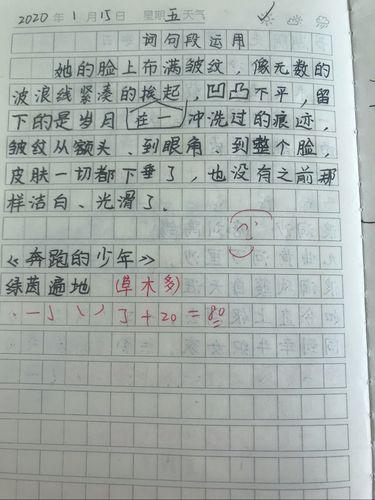 2020年1月15日 星期五天气
词句段运用
她的脸上布满皱纹，像无数的
波浪线紧凑的挨起，凹凸不平，留
下的是岁月在一冲洗过的痕迹，
皱纹从额头、到眼角、到整个脸，
皮肤一切都下垂了，也没有之前那
样洁白、光滑了。
《奔跑的少年》
绿茵遍地 (草木多)
+20=80